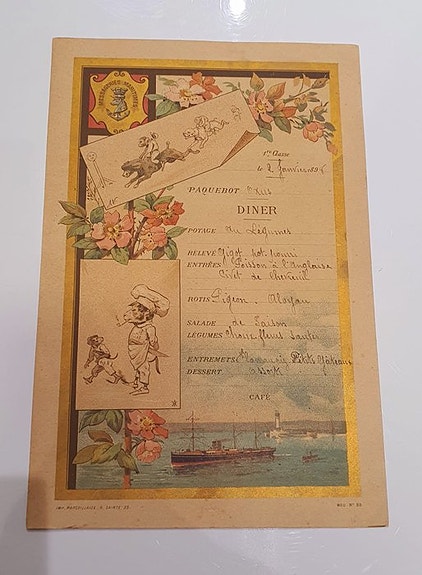 MESSAGERIES MARITIMES
1re Classe
le 2 Janvier 189
PAQUEBOT Oxus
DINER
POTAGE au Légumes
RELEVÉ Gigot pot
ENTRÉES Poisson à l'Anglaise
Civet de Chevreuil
ROTIS Pigeon. Aloyau
SALADE de Saison
LÉGUMES Choux fleurs sautés
ENTREMETS Petits Gâteaux
DESSERT assorti
CAFÉ
IMP. MARSEILLAISE